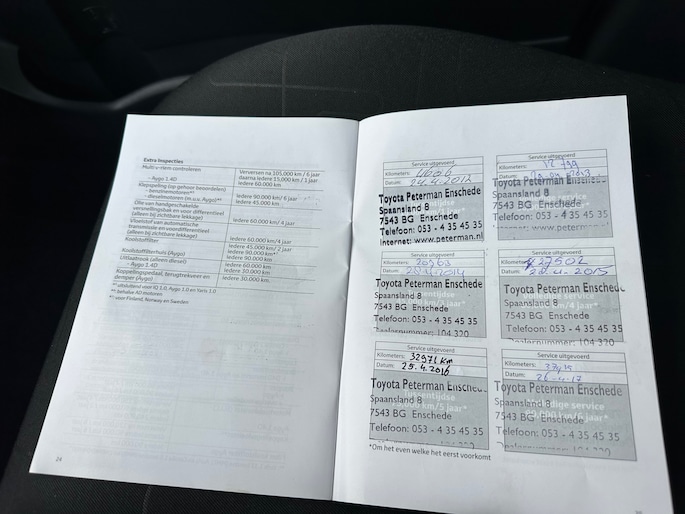 Extra inspecties
Multi v-riem controleren
- Aygo 1.4D
Verversen na 105.000 km / 6 jaar
daarna iedere 15.000 km / 1 jaar
Iedere 60.000 km
Klepspeling (op gehoor beoordelen)
- benzinemotoren*¹
- dieselmotoren (m.u.v. Aygo)*²
Iedere 90.000 km / 6 jaar
Iedere 45.000 km
Olie van handgeschakelde
versnellingsbak en voor differentieel
(alleen bij zichtbare lekkage)
Iedere 60.000 km/4 jaar
Vloeistof van automatische
transmissie en voordifferentieel
(alleen bij zichtbare lekkage)
Iedere 60.000 km/4 jaar
Koolstoffilter
Iedere 45.000 km / 2 jaar
Iedere 90.000 km*³
Koolstoffilterhuis (Aygo)
Iedere 90.000 km
Uitlaatrook (alleen diesel)
- Aygo 1.4D
Iedere 60.000 km
Iedere 30.000 km
Koppelingspedaal, terugtrekveer en
demper (Aygo)
Iedere 30.000 km
*¹ uitsluitend voor IQ 1.0, Aygo 1.0 en Yaris 1.0
*² behalve AD motoren
*³ voor Finland, Norway en Sweden
24
Service uitgevoerd
Kilometers:
Datum: 24.4.2012
Toyota Peterman Enschede
Spaansland 8
7543 BG Enschede
Telefoon: 053 - 4 35 45 35
Internet: www.peterman.nl
Service uitgevoerd
Kilometers:
Datum:
Toyota Peterman Enschede
Spaansland 8
7543 BG Enschede
Telefoon: 053 - 4 35 45 35
Service uitgevoerd
Kilometers:
Datum:
Toyota Peterman Enschede
Spaansland 8
7543 BG Enschede
Telefoon: 053 - 4 35 45 35
Service uitgevoerd
Kilometers: 27502
Datum:
Toyota Peterman Enschede
Spaansland 8
7543 BG Enschede
Telefoon: 053 - 4 35 45 35
Service uitgevoerd
Kilometers: 32971 km
Datum: 25.4.2016
Toyota Peterman Enschede
Spaansland 8
7543 BG Enschede
Telefoon: 053 - 4 35 45 35
Service uitgevoerd
Kilometers:
Datum: 26-4-17
Toyota Peterman Enschede
Spaansland 8
7543 BG Enschede
Telefoon: 053 - 4 35 45 35
*Om het even welke het eerst voorkomt